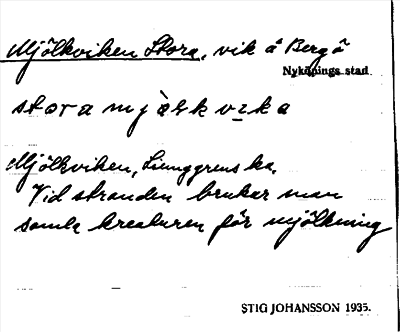 Mjölkviken Stora, vik å Bergö
Nyköpings stad
stora mjölkvika
Mjölkviken, Ljunggrens ka.
Vid stranden brukar man
samla kreaturen för mjölkning
STIG JOHANSSON 1935.